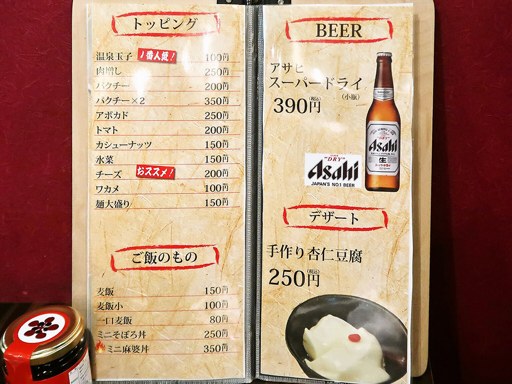 トッピング
温泉玉子 1番人気! 100円
肉増し 250円
パクチー 200円
パクチー×2 350円
アボカド 250円
トマト 200円
カシューナッツ 150円
水菜 150円
チーズ おススメ! 200円
ワカメ 100円
麺大盛り 150円
ご飯のもの
麦飯 150円
麦飯小 100円
一口麦飯 80円
ミニそぼろ丼 250円
ミニ麻婆丼 350円
BEER
アサヒ
スーパードライ
(小瓶)
390円(税込)
Asahi
生
"DRY"
Asahi
JAPAN'S NO.1 BEER
デザート
手作り杏仁豆腐
250円(税込)